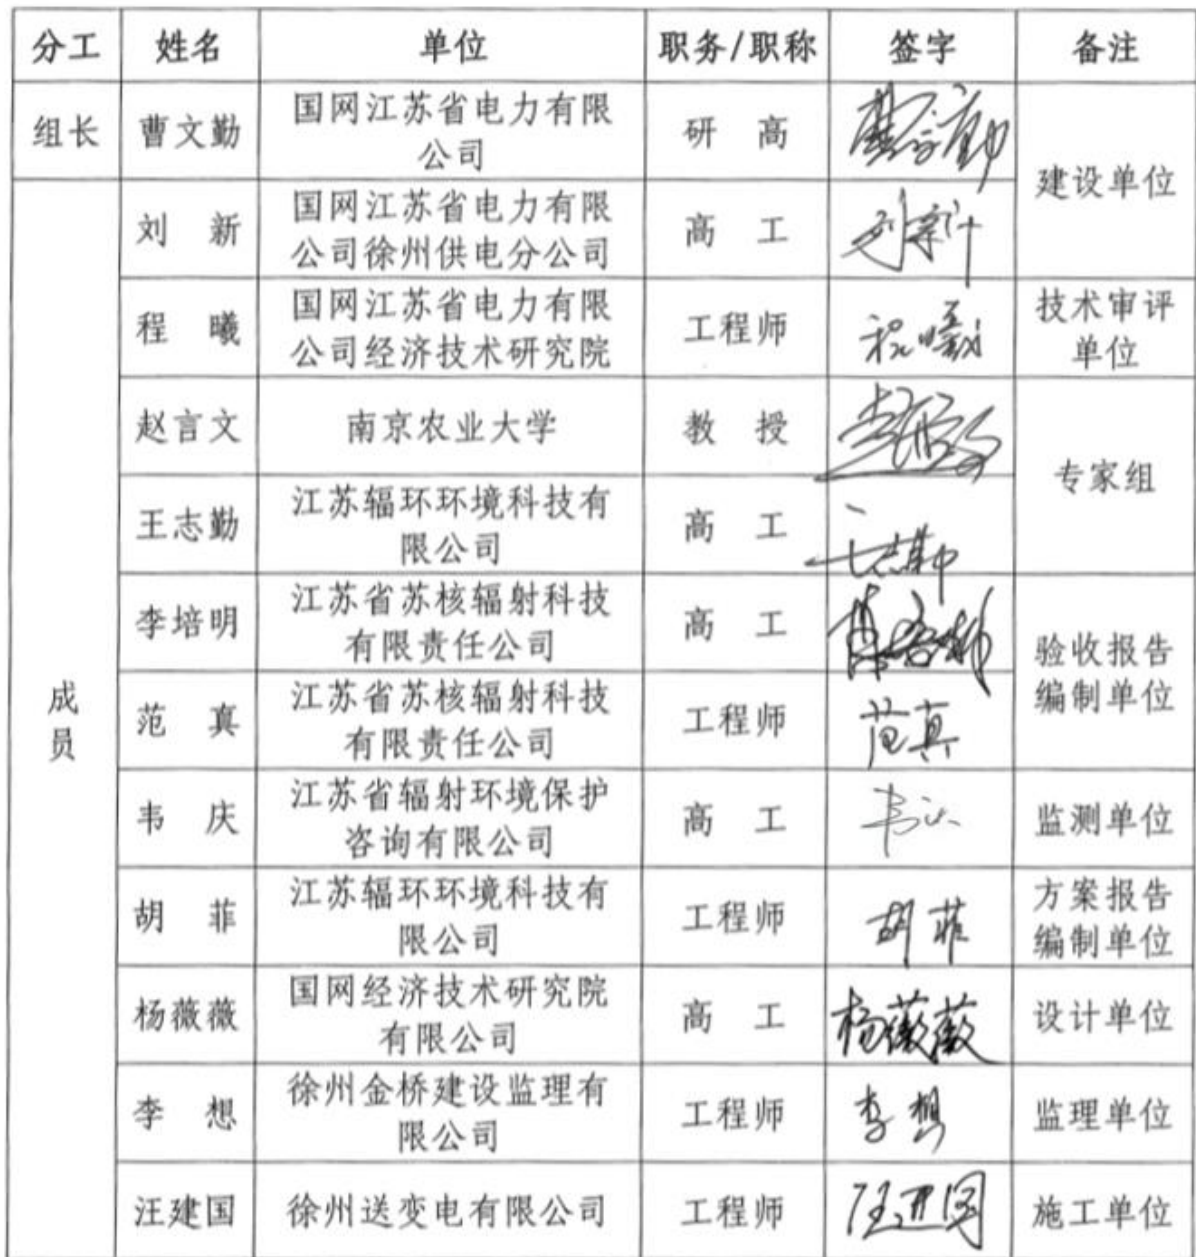 分工 姓名 单位 职务/职称 签字 备注
组长 曹文勤 国网江苏省电力有限
公司 研 高 曹文勤 建设单位
成员 刘 新 国网江苏省电力有限
公司徐州供电分公司 高 工 刘新
程 曦 国网江苏省电力有限
公司经济技术研究院 工程师 程曦 技术审评
单位
赵言文 南京农业大学 教 授 赵言文 专家组
王志勤 江苏辐环环境科技有
限公司 高 工 王志勤
李培明 江苏省苏核辐射科技
有限责任公司 高 工 验收报告
编制单位
范 真 江苏省苏核辐射科技
有限责任公司 工程师 范真
韦 庆 江苏省辐射环境保护
咨询有限公司 高 工 韦庆 监测单位
胡 菲 江苏辐环环境科技有
限公司 工程师 胡菲 方案报告
编制单位
杨薇薇 国网经济技术研究院
有限公司 高 工 杨薇薇 设计单位
李 想 徐州金桥建设监理有
限公司 工程师 李想 监理单位
汪建国 徐州送变电有限公司 工程师 汪建国 施工单位